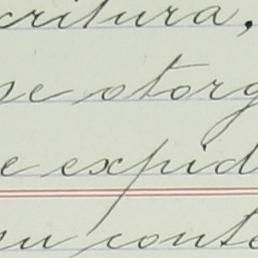 critura,
se otorg
e expid
su conte